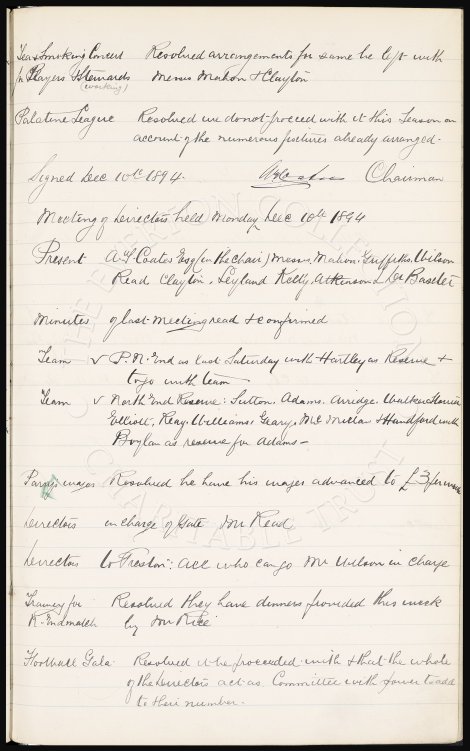 Tea & Smoking Concert Resolved arrangements for same be left with
for Players & Stewards Messrs Mahon & Clayton
(working)
Palatine League Resolved we do not proceed with it this Season on
account of the numerous fixtures already arranged.
Signed Dec 10th 1894. Chairman
Meeting of Directors held Monday Dec 10th 1894
Present A. T. Coates Esq (in the chair) Messrs. Mahon. Griffiths. Wilson
Read Clayton. Leyland Kelly, Atkinson & Dr Baxter
Minutes of last meeting read & confirmed
Team v P. N. End as last Saturday with Hartley as Reserve &
to go with team
Team v North End Reserve: Sutton. Adams. Arridge. Walker
Elliott, Reay. Williams. Geary. McMillan & Handford with
Boylan as reserve for Adams -
Parry's wages Resolved he have his wages advanced to £3 per week
Directors in charge of Gate Mr Read
Directors to Preston: all who can go Mr Wilson in charge
Training for Resolved they have dinners provided this week
N. End match by Mr Rice
Football Gala Resolved it be proceeded with & that the whole
of the Directors act as Committee with power to add
to their number.
THE EVERTON COLLECTION
CHARITABLE TRUST